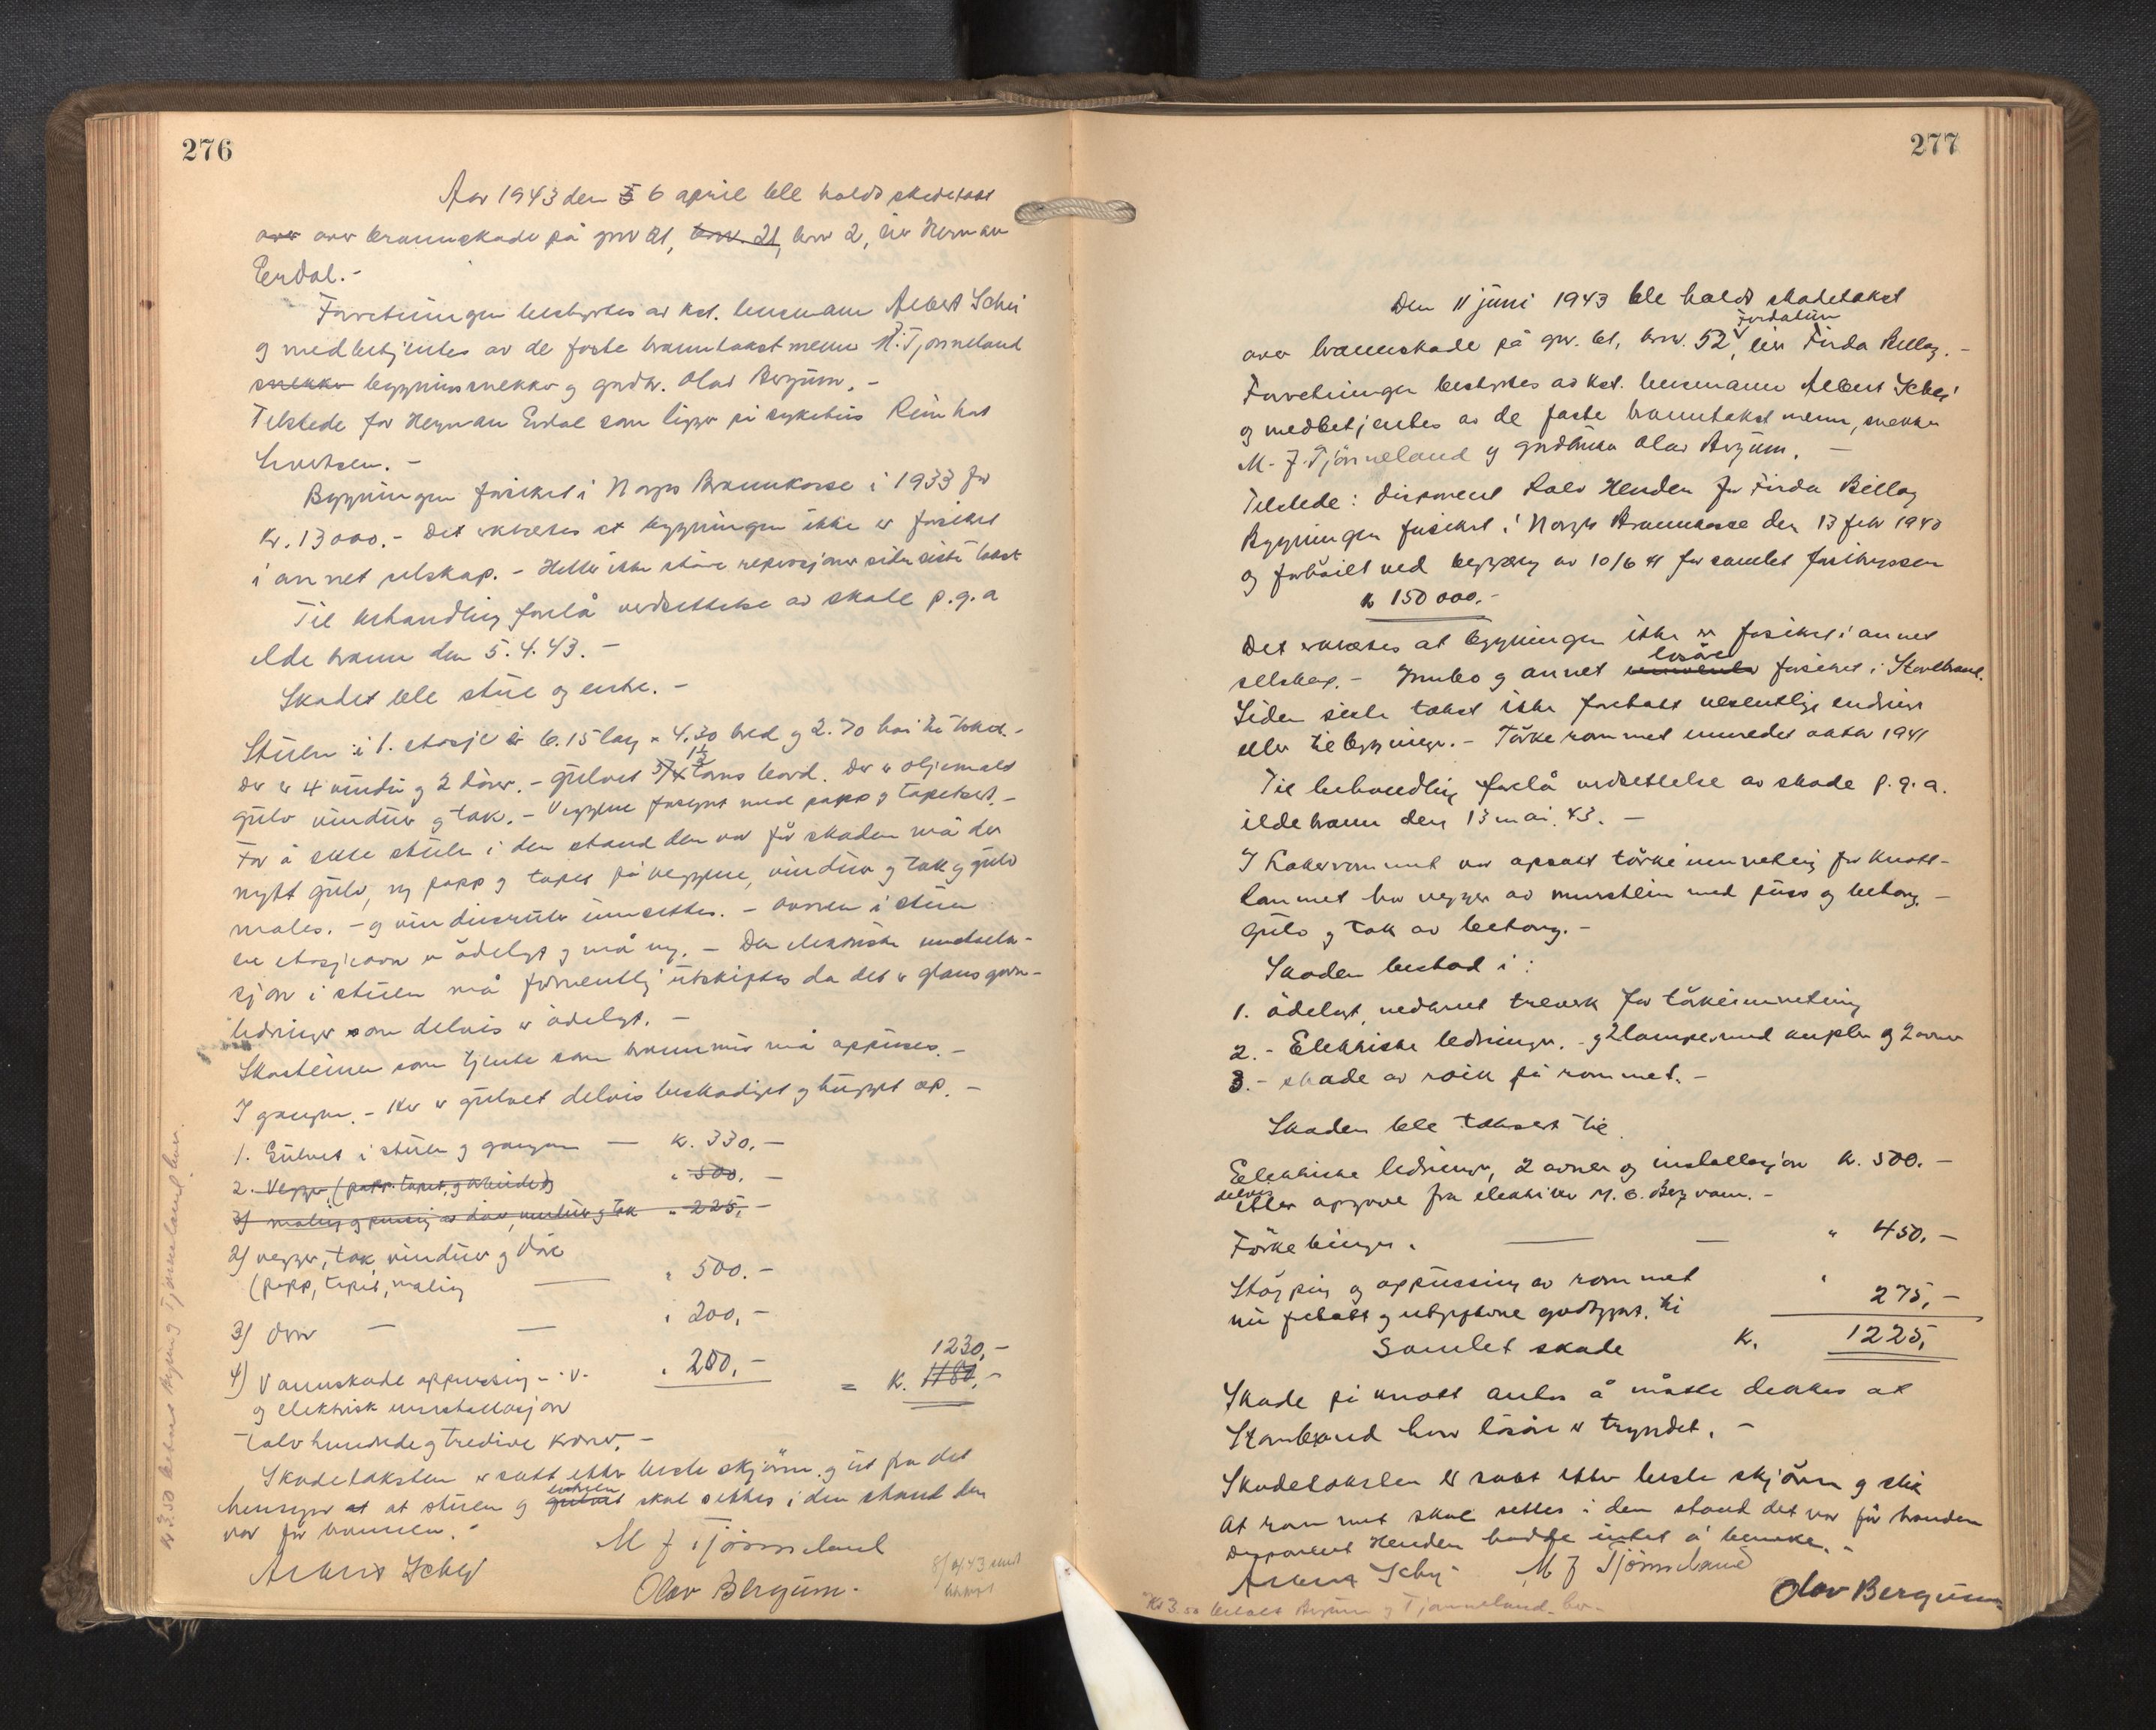 276
Aar 1943 den 6 april ble holdt skadetakst
over brannskade på gnr 21, bnr 2, eier Herman
Erdal.-
Forretningen bestyrtes av kst. lensmann Albert Schei
og medbetjentes av de faste branntakstmenn M. J. Tjønneland
bygningssnekker og grdbr. Olav Bergum. -
Tilstede for Herman Erdal som ligger på sykehus Reinhart
Bygningen forsikret i Norges Brannkasse i 1933 for
kr. 13000.- Det erklæres at bygningen ikke er forsikret
i annet selskap. - Heller ikke større reperasjoner siden siste takst
Til behandling forelå verdsettelse av skade p.g.a
ildebrann den 5.4.43. -
Skadet ble stue og
Stuen i 1. etasje er 6.15 lang × 4.30 bred og 2.70 høi til taket.-
Der er 4 vindu og 2 dører. - Gulvet toms bord. Der er oljemalt
gulv vinduer og tak. - Veggene forsynt med papp og tapetsert. -
For å sette stuen i den stand den var før skaden må der
nytt gulv, ny papp og tapet på veggene, vinduer og tak og gulv
males. - og vindusruter innsettes. - Ovnen i stuen
en etasjeovn er ødelagt og må ny. - Den elektriske installa-
sjon i stuen må formentlig utskiftes da det er glansgarn-
ledninger som delvis er ødelagt. -
Skorsteinen som tjente som brannmur må oppusses. -
I gangen. - Her er gulvet delvis beskadiget og hugget op. -
1. Gulvet i stuen og gangen — kr. 330.-
2. Vegger, (papp, tapet, og " 500.-
3) maling og pussing av dør, vinduer og tak " 225,-
2) vegger, tak, vinduer og døre
(papp, tapet, maling — " 500.-
3) Ovn — — " 200,-
4) Vannskade oppussing m.v. " 200,- 1230,-
og elektrisk installasjon = kr. 1180,-
Tolvhundrede og tredive kroner. -
Skadetaksten er satt efter beste skjønn og ut fra det
hensyn at stuen og skal settes i den stand den
var før brannen. -
Albert Schei M J Tjönneland
Olav Bergum.
8/4/43
kr 3.50 betalt Bergum og Tjønneland hver.
277
Den 11 juni 1943 ble holdt skadetakst
over brannskade på gnr. 61, bnr. 52, Fordatun eier Firda Billag. -
Forretningen bestyrtes av kst. lensmann Albert Schei
og medbetjentes av de faste branntakstmenn, snekker
M. J. Tjønneland og grdbruker Olav Bergum. —
Tilstede: disponent Rolv Henden for Firda Billag
Bygningen forsikret i Norges Brannkasse den 13 febr 1940
og forhøiet ved begjæring av 10/6 41 for samlet forsikringssum
kr 150000.-
Det erklæres at bygningen ikke er forsikret i annet
selskap. - Innbo og annet løsøre forsikret i Storebrand.
Siden siste takst ikke foretatt vesentlige endringer
eller tilbygninger. - Tørkerommet innredet 1941
Til behandling forelå verdsettelse av skade p.g.a.
ildebrann den 13 mai. 43. —
I Lakerrommet var opsatt tørkeinnretning for knott-
rommet har vegger av murstein med puss og betong. -
Gulv og tak av betong. -
Skaden bestod i:
1. ödelagt, nedbrent treverk for tørkeinnretning
2. - Elektriske ledninger. - og 2 lamper med kupler og 2 ovner
3. - skade av røik på rommet. -
Skaden ble taksert til
Elektriske ledninger, 2 ovner og installasjon kr. 500.-
delvis etter opgave fra elektriker M. O. Bergum. -
Tørkebinger. — — " 450.-
Støyping og oppussing av rommet "
nu foretatt og utgiftene godtgjort til 275,-
Samlet skade kr. 1225,
Skade på knott antas å måtte dekkes av
Storebrand hvor løsøre er trygdet. -
Skadetaksten er satt etter beste skjønn og slik
at rommet skal settes i den stand det var før branden
Disponent Henden hadde intet å bemerke. -
Albert Schei M J Tjönneland
Olav Bergum
Kr 3.50 betalt Bergum og Tjønneland hver